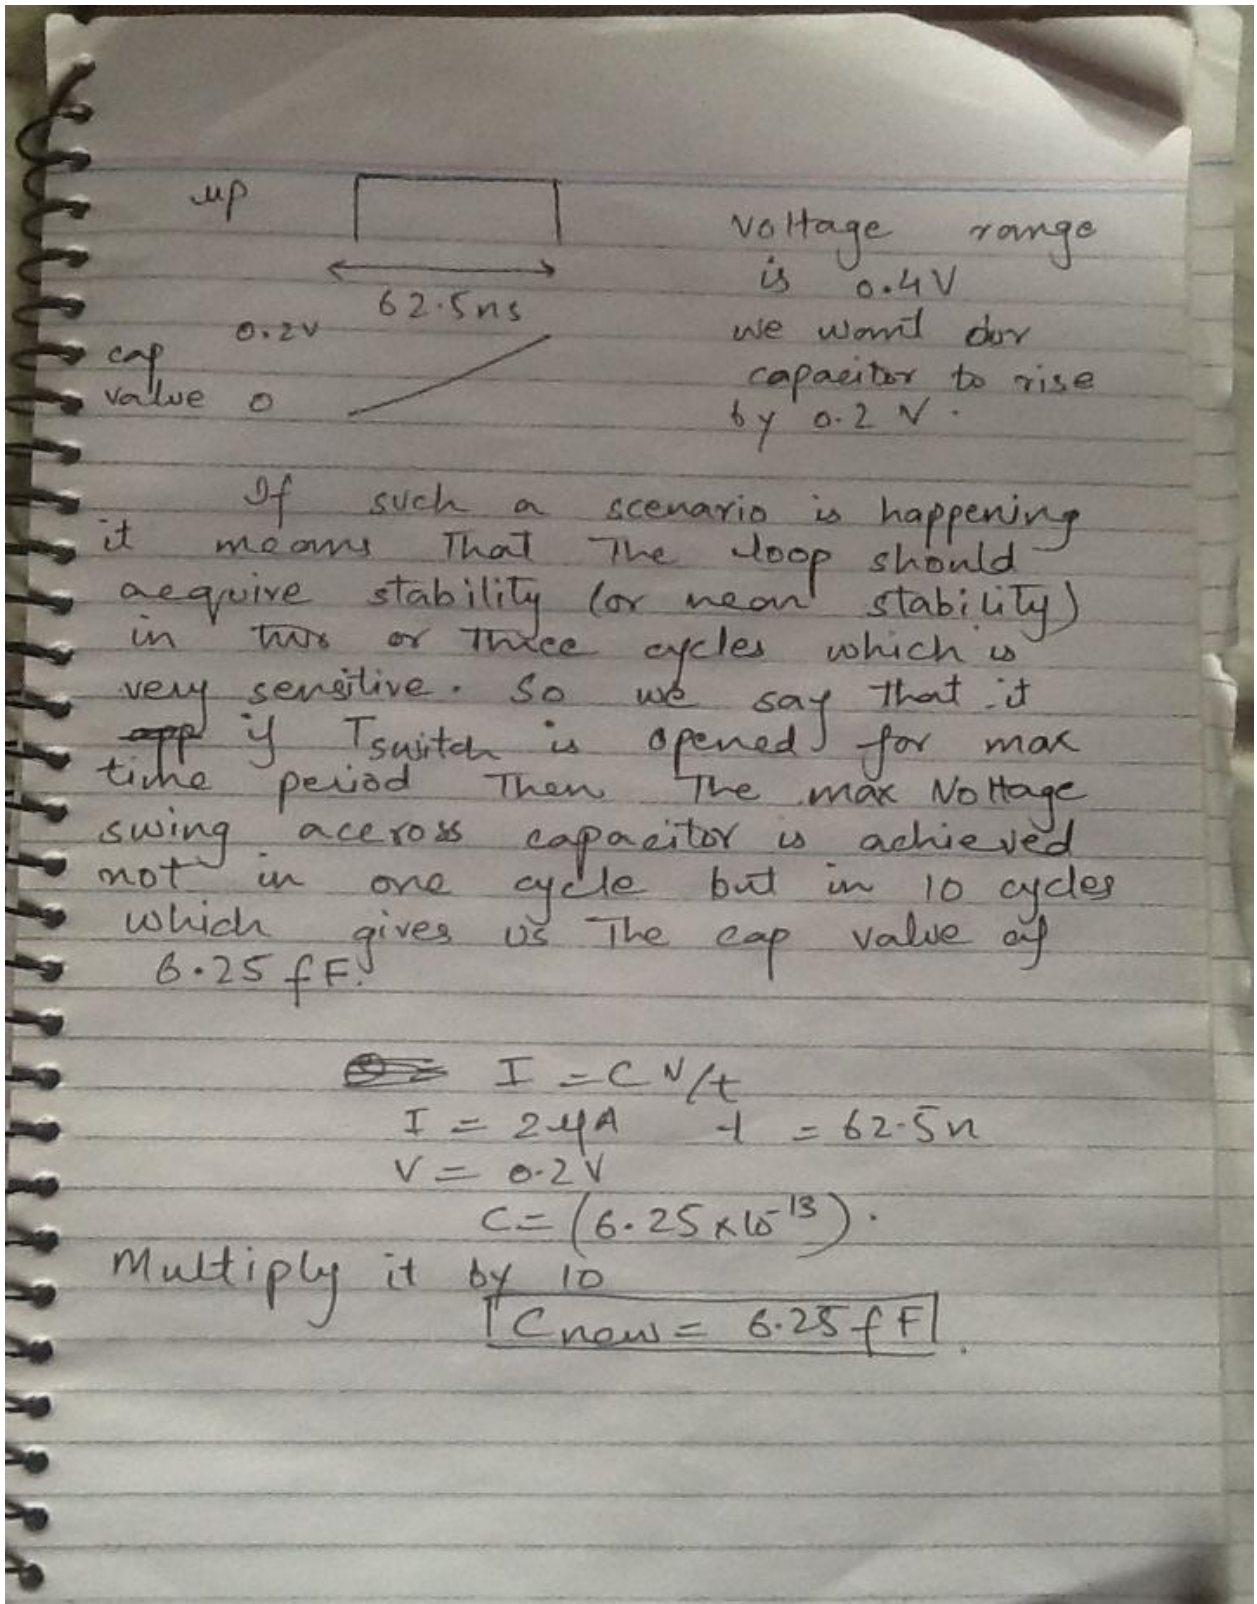 up
voltage range
is 0.4V
62.5ns
0.2V
we want our
cap
capacitor to rise
value 0
by 0.2 V.
If such a scenario is happening
it means That The loop should
acquire stability (or near stability)
in two or Three cycles which is
very sensitive. So we say that it
app if Tswitch is opened for max
time period Then The max Voltage
swing aceross capacitor is achieved
not in one cycle but in 10 cycles
which gives us The cap value of
6.25 fF.
I = C V/t
I = 2μA t = 62.5n
V = 0.2V
C = (6.25 x 10^-13).
Multiply it by 10
Cnew = 6.25 fF.